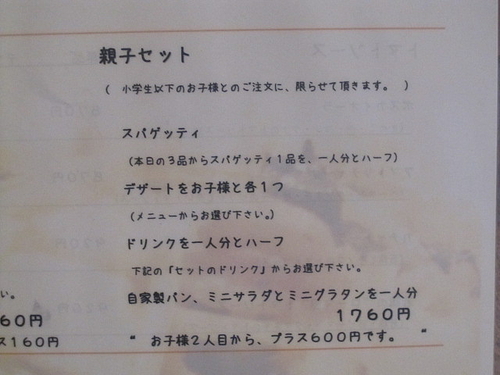 親子セット
( 小学生以下のお子様とのご注文に、限らせて頂きます。 )
スパゲッティ
(本日の3品からスパゲッティ1品を、一人分とハーフ)
デザートをお子様と各1つ
(メニューからお選び下さい。)
ドリンクを一人分とハーフ
下記の「セットのドリンク」からお選び下さい。
い。
自家製パン、ミニサラダとミニグラタンを一人分
60円
1760円
ス160円
" お子様2人目から、プラス600円です。 "